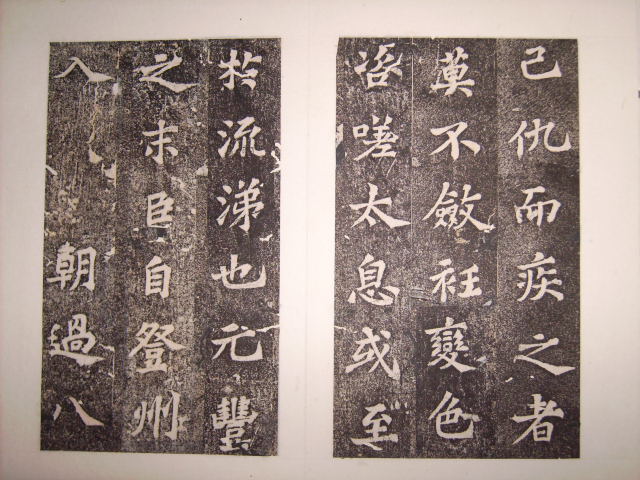 己仇而疾之者
莫不斂衽變色
咨嗟太息或至
於流涕也元豐
之末臣自登州
入朝過八